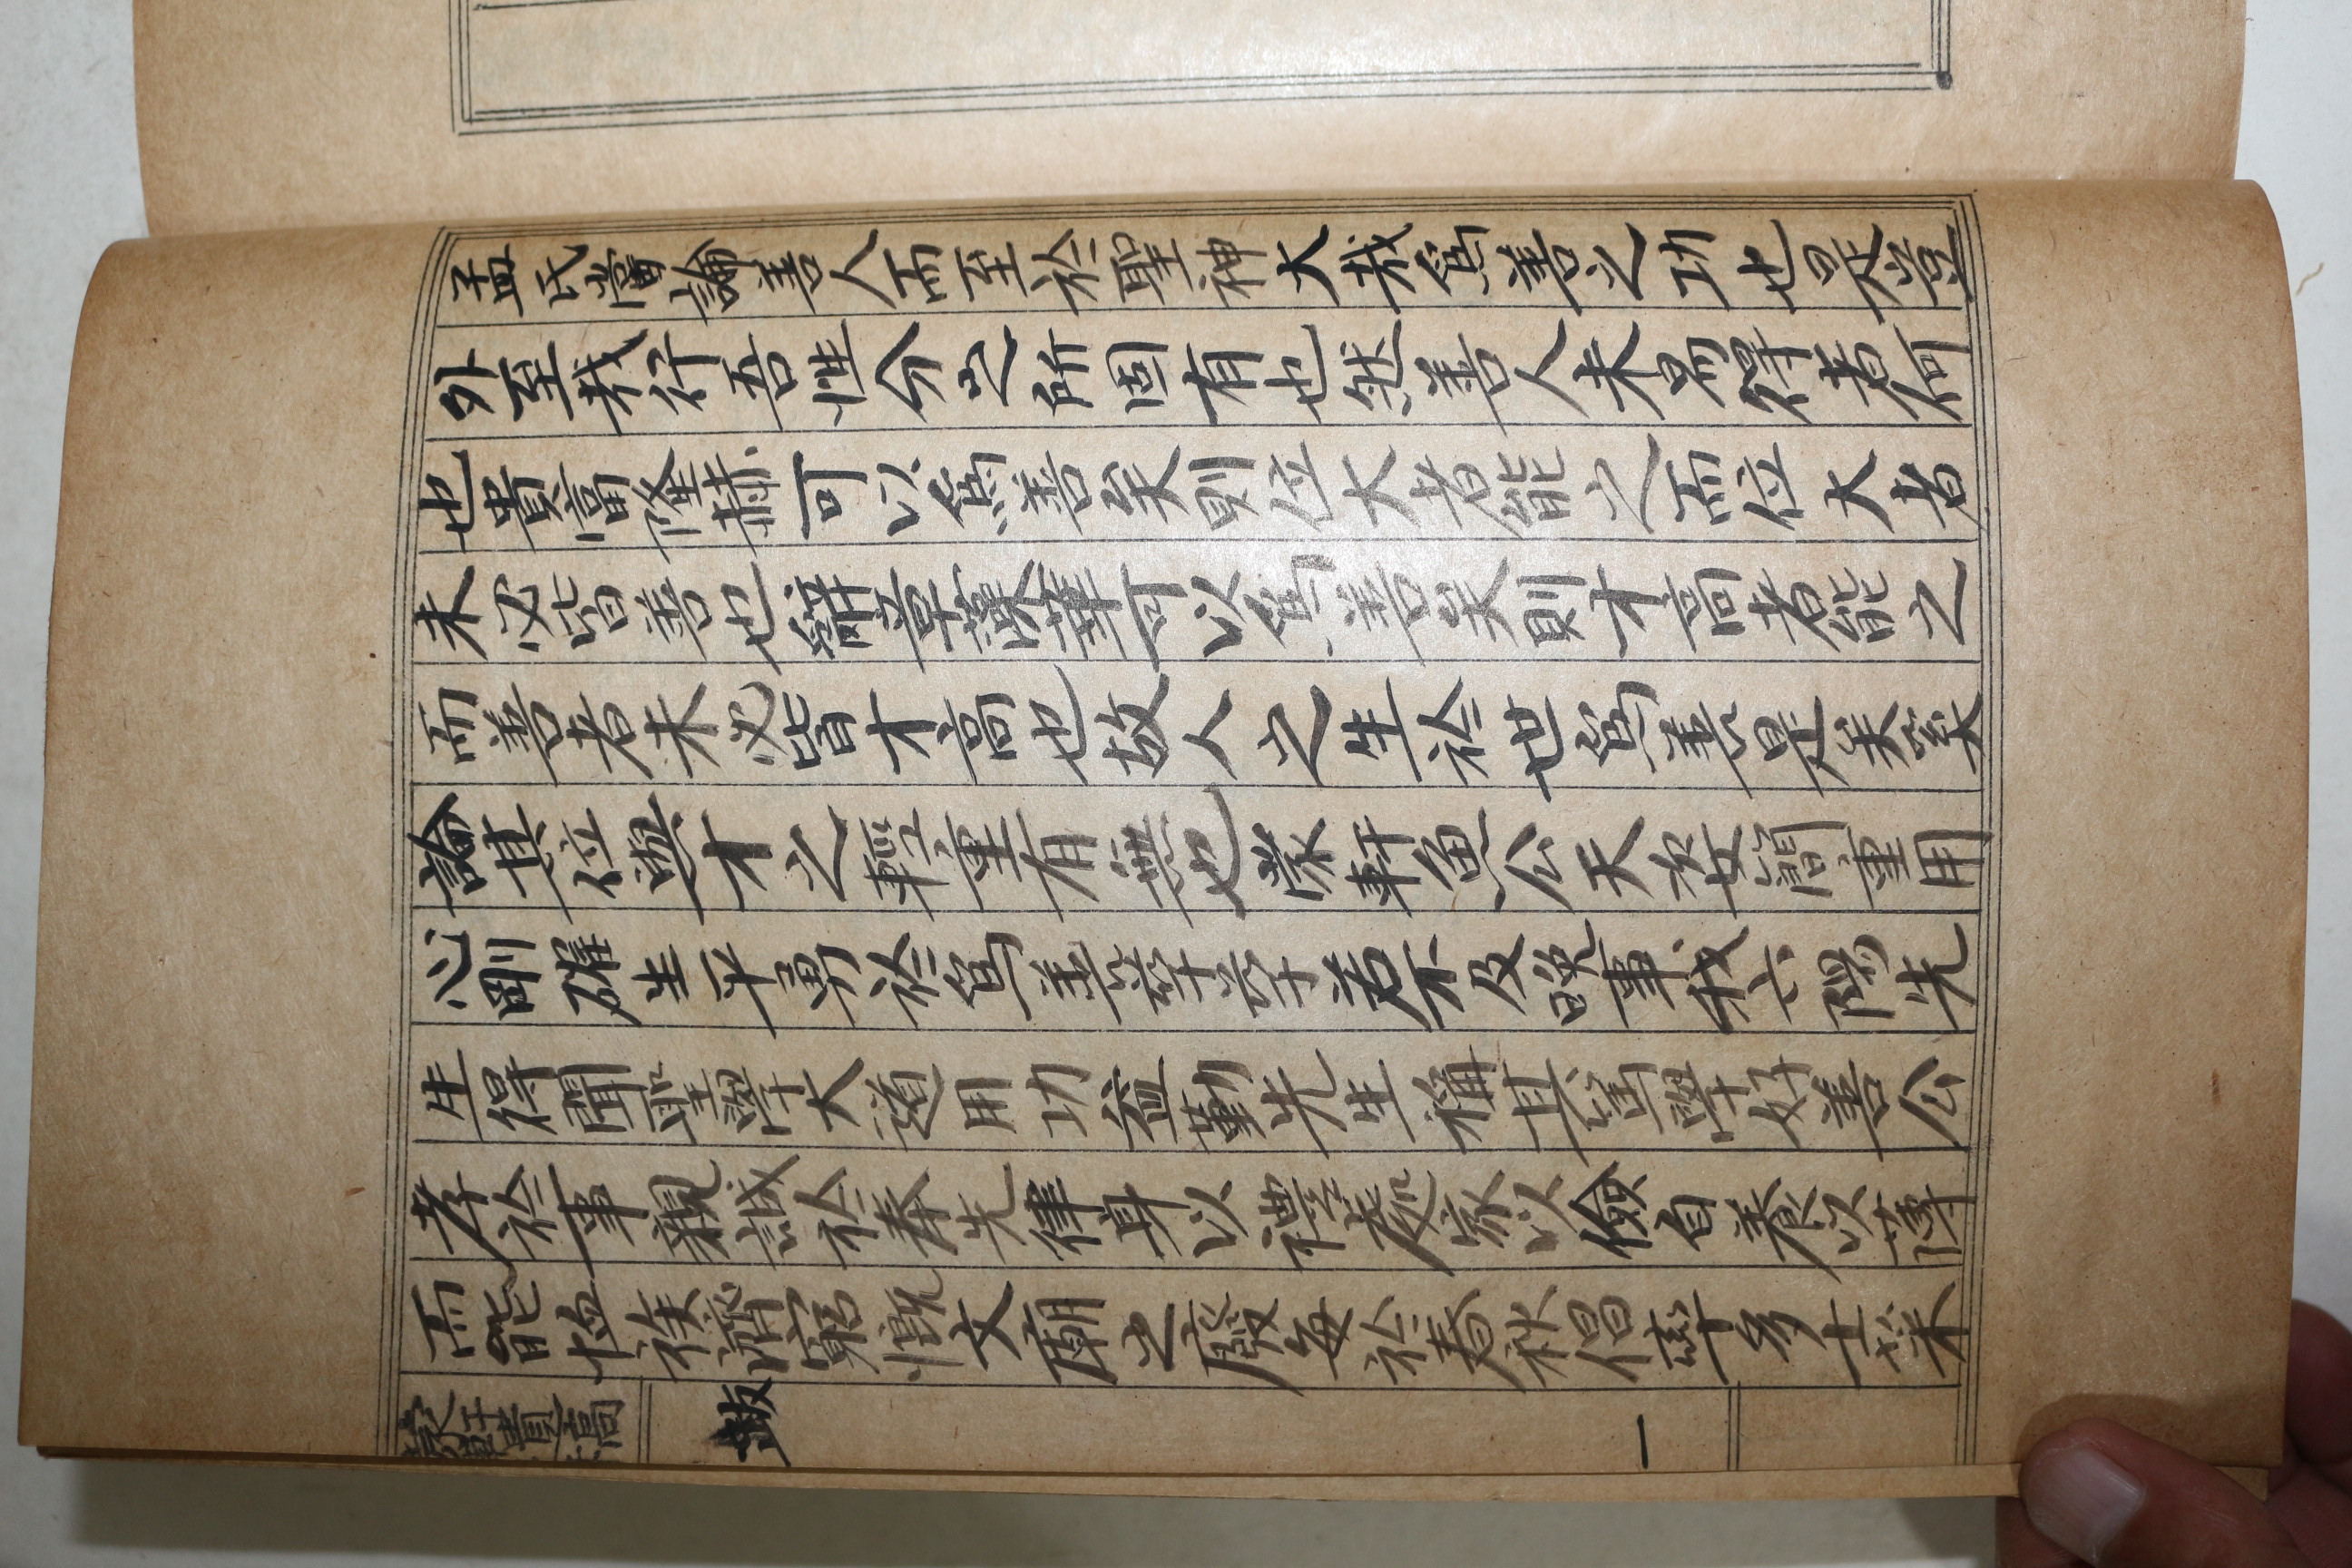 孟氏當論善人而至於聖神大哉爲善之功也是豈
外至哉行吾性分之所固有也然善人未易得者何
也貴富隆赫可以爲善矣則位大者能之而位大者
未必皆善也辭章藻華可以爲善矣則才高者能之
而善者未必皆才高也故人之生於世爲善是矣奚
論其位與才之輕重有無也蒙軒魚公天姿簡重用
心剛確生平勇於爲善孳孳若不及晩事我六陽先
生得聞聖學大道用功益勤先生稱其篤學好善公
孝於事親誠於奉先律身以禮處家以儉自養以薄
而能恤族濟窮慨文廟之廢每於春秋倡率多士菜
蒙軒遺稿 跋 一